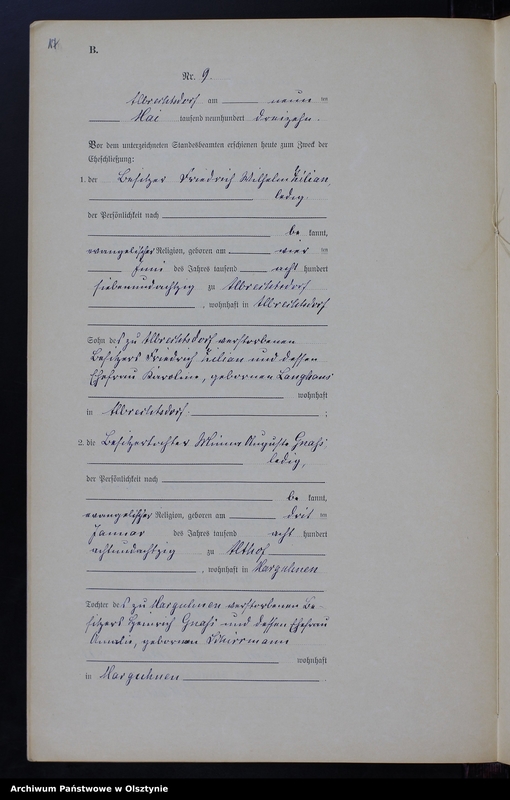 B.
Nr. 9.
Albrechtsdorf am neun ten
Mai tausend neunhundert dreizehn
Vor dem unterzeichneten Standesbeamten erschienen heute zum Zweck der
Eheschließung:
1. der Besitzer Friedrich Wilhelm Kilian,
ledig
der Persönlichkeit nach
be kannt,
evangelischer Religion, geboren am vier ten
Juni des Jahres tausend acht hundert
siebenundachtzig zu Albrechtsdorf
, wohnhaft in Albrechtsdorf
Sohn des zu Albrechtsdorf verstorbenen
Besitzers Friedrich Kilian und dessen
Ehefrau Karoline, geborenen Langhans
wohnhaft
in Albrechtsdorf ;
2. die Besitzertochter Minna Auguste
ledig,
der Persönlichkeit nach
be kannt,
evangelischer Religion, geboren am drit ten
Januar des Jahres tausend acht hundert
achtundachtzig zu Althof
, wohnhaft in Marguhnen
Tochter des zu Marguhnen verstorbenen Be-
sitzers Heinrich und dessen Ehefrau
Amalie, geborenen Schirrmann
wohnhaft
in Marguhnen .
Archiwum Państwowe w Olsztynie